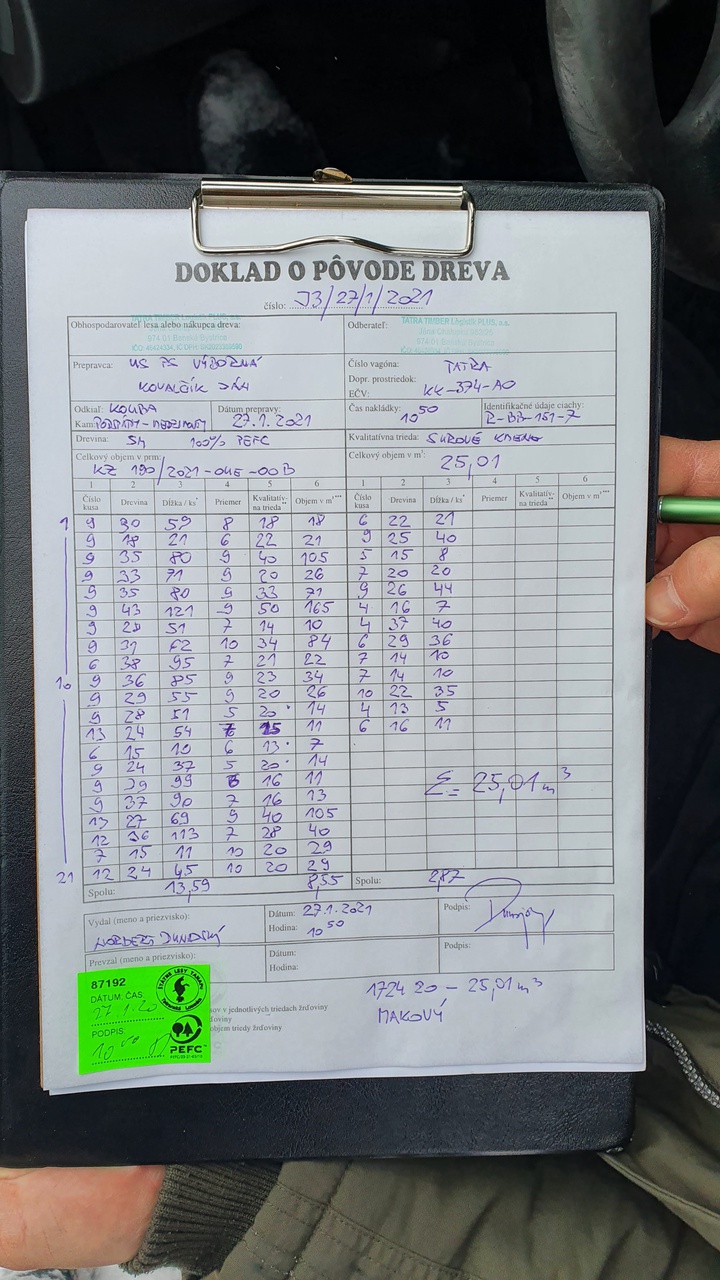 DOKLAD O PÔVODE DREVA
číslo: J3/27/1/2021
Obhospodarovateľ lesa alebo nákupca dreva:
TATRA TIMBER Logistik PLUS, a.s.
974 01 Banská Bystrica
Odberateľ:
TATRA TIMBER Logistik PLUS, a.s.
974 01 Banská Bystrica
Prepravca: US PS VÝBORNÁ
KOVALČÍK JÁN
Číslo vagóna: TATRA
Dopr. prostriedok:
EČV: KK-374-AO
Odkiaľ: KOLIBA
Kam:
Dátum prepravy:
27.1.2021
Čas nakládky:
10 50
Identifikačné údaje ciachy:
R-BB-151-7
Drevina: SM 100% PEFC
Kvalitatívna trieda: SUROVÉ KMENE
Celkový objem v prm:
KZ 190/2021-OKE-OOB
Celkový objem v m³:
25,01
1 2 3 4 5 6 1 2 3 4 5 6
Číslo kusa Drevina Dĺžka / ks* Priemer Kvalitatív-na trieda** Objem v m³*** Číslo kusa Drevina Dĺžka / ks* Priemer Kvalitatív-na trieda** Objem v m³***
1 9 30 59 8 18 18 6 22 21
9 18 21 6 22 21 9 25 40
9 35 80 9 40 105 5 15 8
9 33 71 9 20 26 7 20 20
9 35 80 9 33 71 9 26 44
9 43 121 9 50 165 4 16 7
9 28 51 7 14 10 4 37 40
9 31 62 10 34 84 6 29 36
6 38 95 7 21 22 7 14 10
10 9 36 85 9 23 34 7 14 10
9 29 55 9 20 26 10 22 35
9 28 51 5 20 14 4 13 5
13 24 54 7 15 11 6 16 11
6 15 10 6 13 7
9 24 37 5 20 14
9 39 99 6 16 11
9 37 90 7 16 13
Σ= 25,01 m³
13 27 69 9 40 105
12 36 113 7 28 40
7 15 11 10 20 29
21 12 24 45 10 20 29
Spolu: 13,59 8,55 Spolu: 2,87
Vydal (meno a priezvisko):
NORBERT DUNAJSKÝ
Dátum: 27.1.2021
Hodina: 10 50
Podpis:
Prevzal (meno a priezvisko):
Dátum:
Hodina:
Podpis:
87192
DÁTUM: ČAS:
27.1.20
PODPIS:
ŠTÁTNE LESY TANAPU
Tatranská Lomnica
PEFC
kov v jednotlivých triedach žrďoviny
ďoviny
objem triedy žrďoviny
1724 20 - 25,01 m³
MAKOVÝ